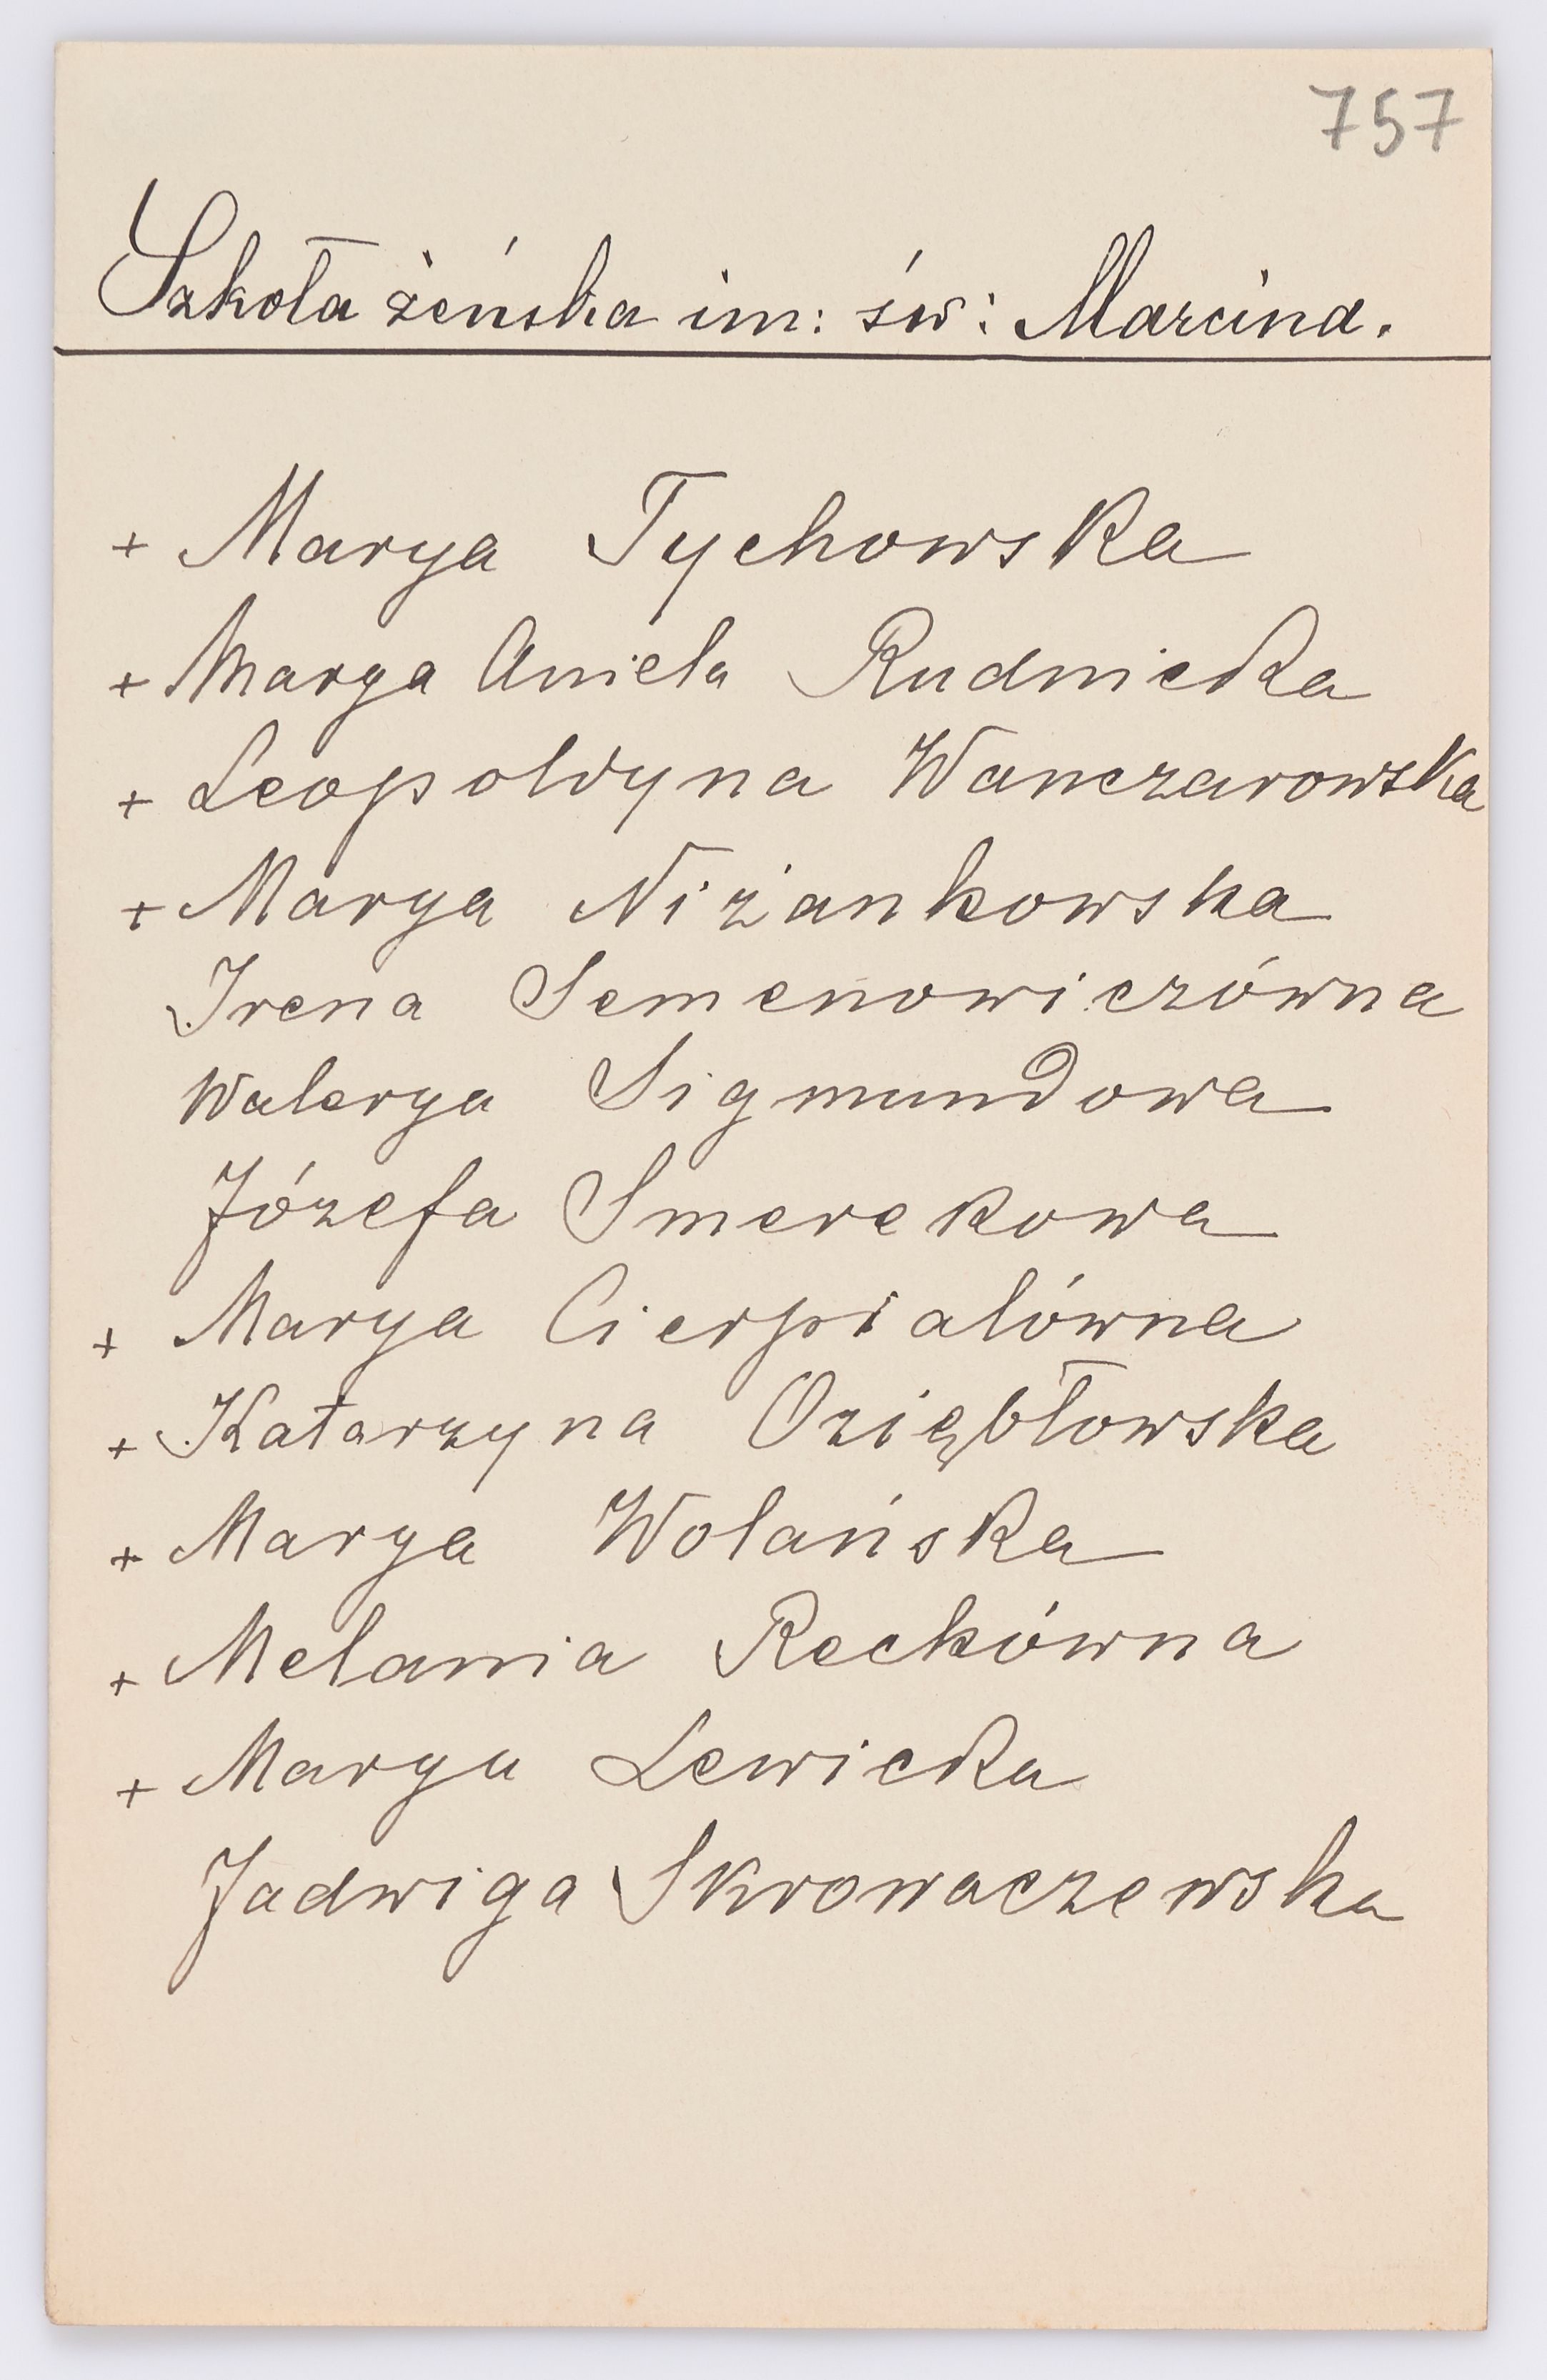 757
Szkoła żeńska im: św: Marcina.
+ Marya Tychowska
+ Marya Aniela Rudnicka
+ Leopoldyna Wanczarowska
+ Marya Niżankowska
Irena Semenowiczówna
Walerya Sigmundowa
Józefa Smerekowa
+ Marya Cierpialówna
+ Katarzyna Oziębłowska
+ Marya Wolańska
+ Melania Reckówna
+ Marya Lewicka
Jadwiga Skrowaczewska